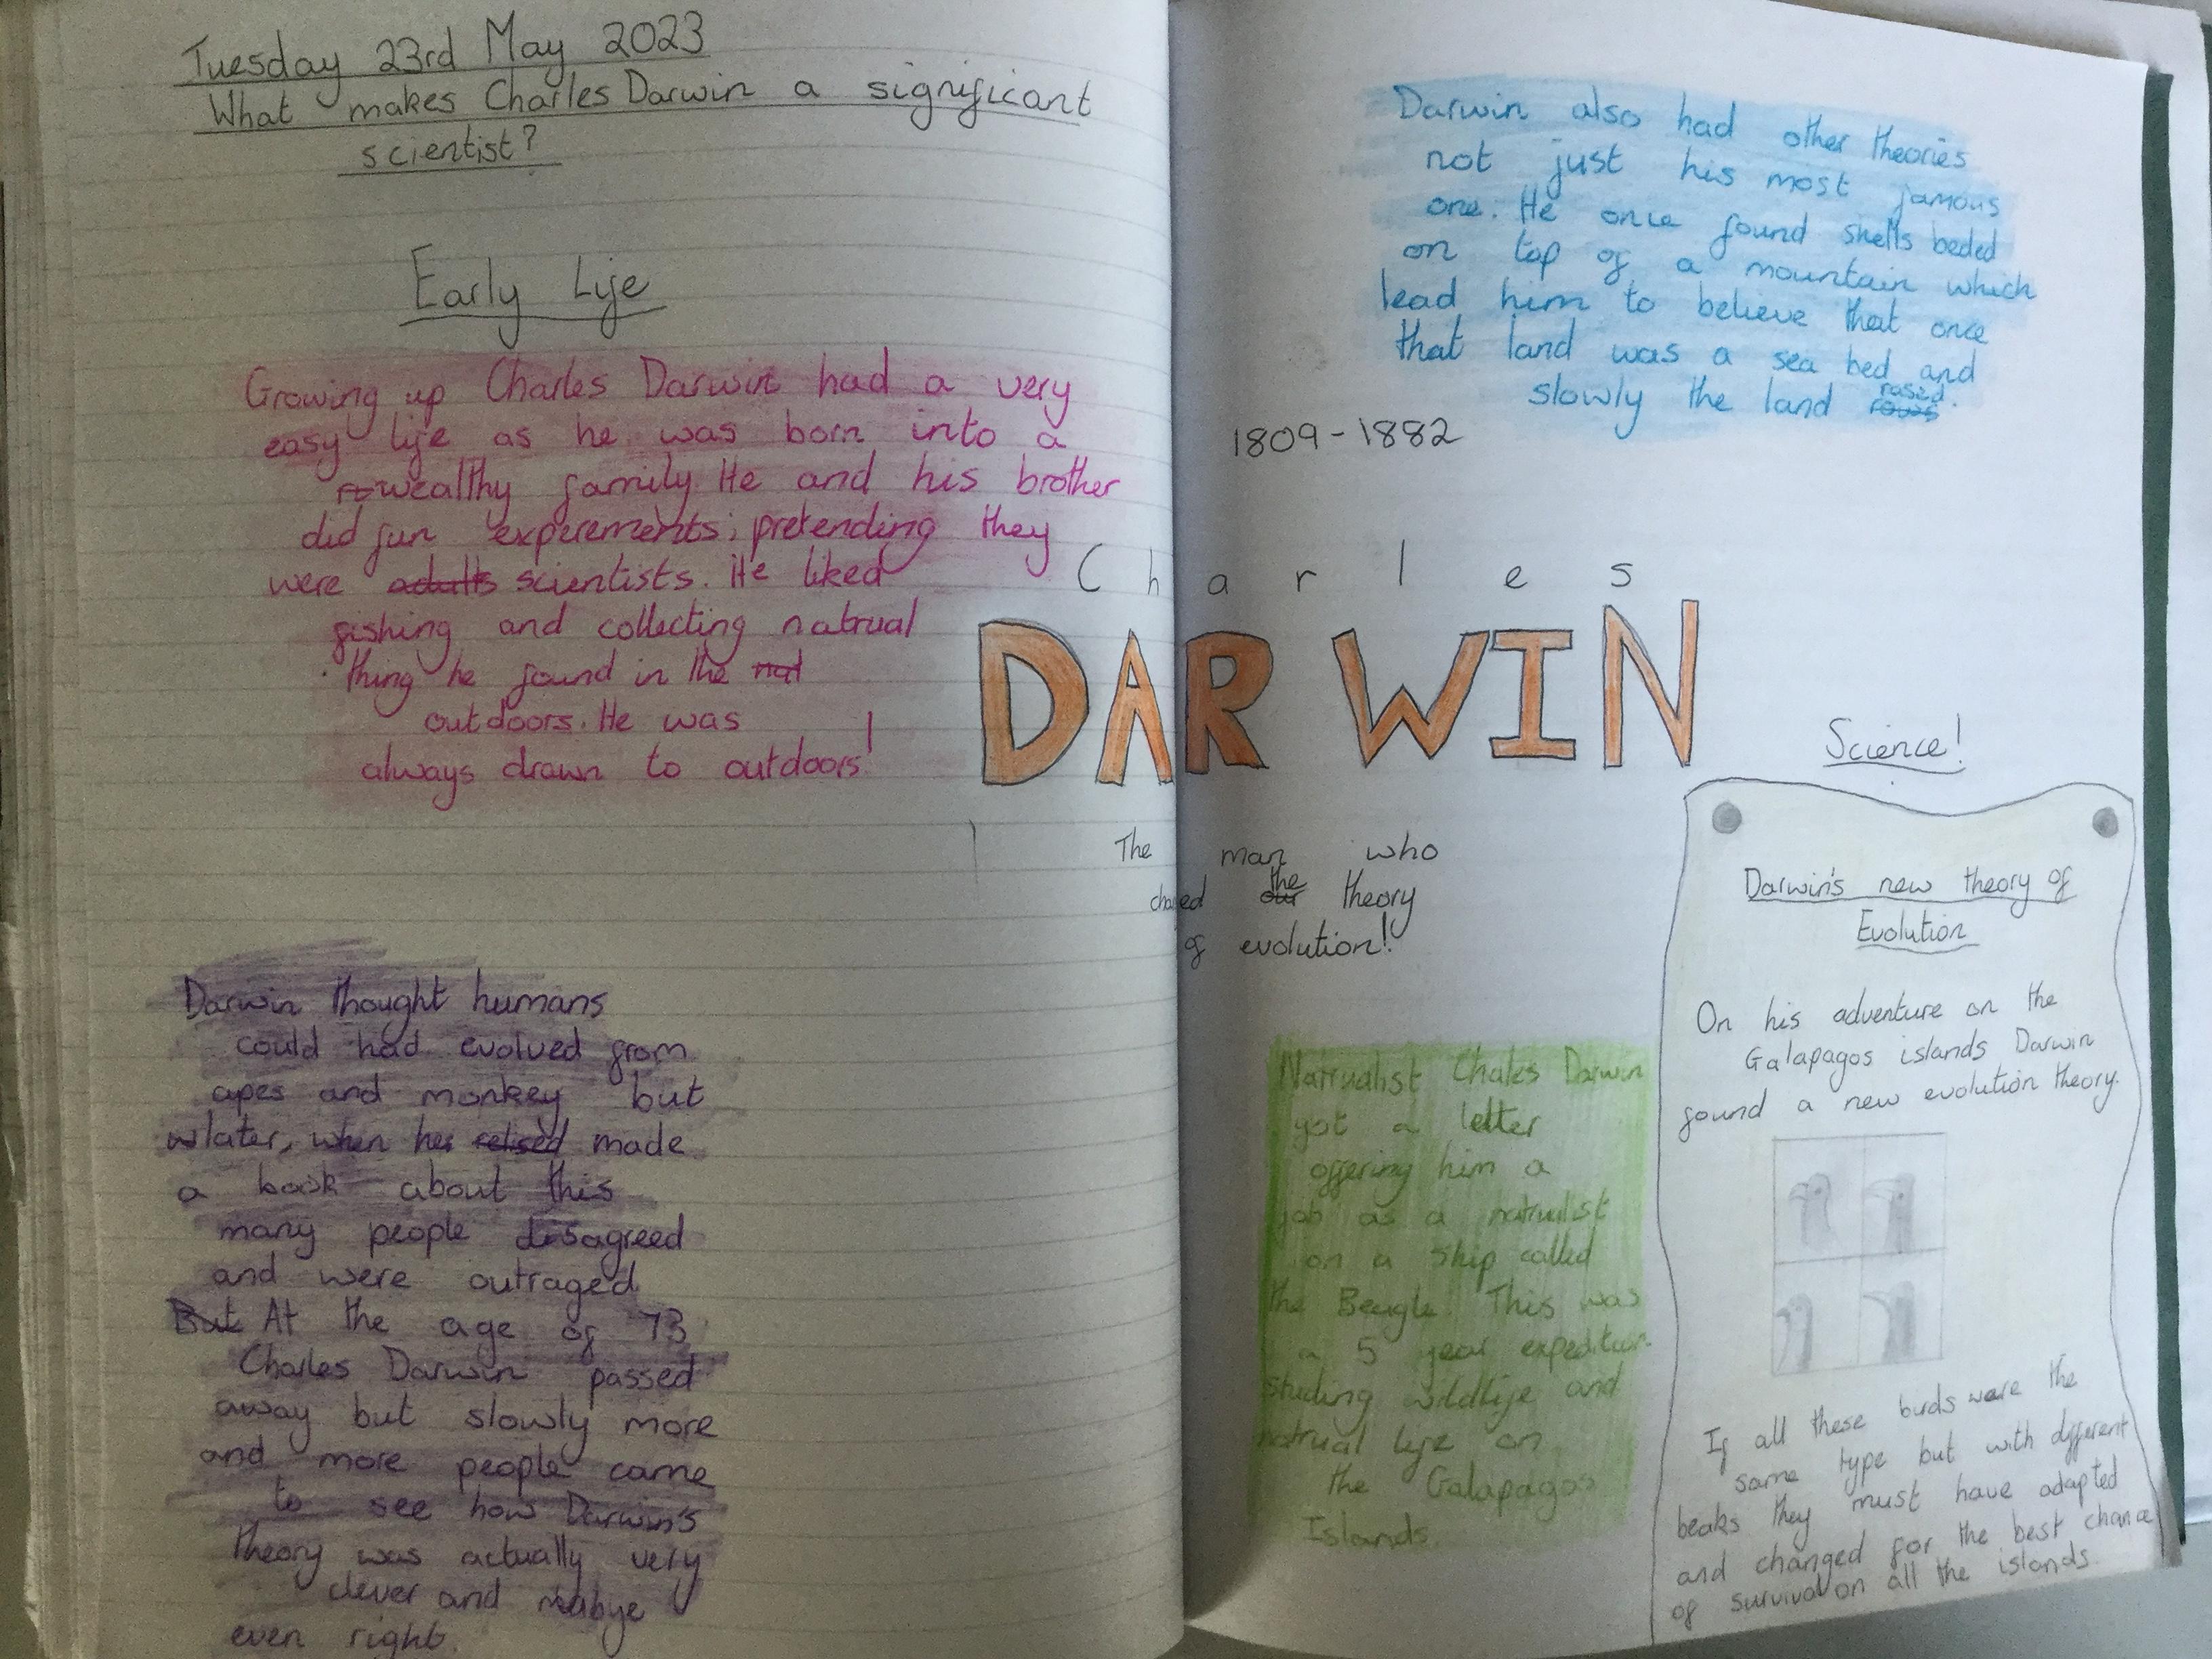 Tuesday 23rd May 2023
What makes Charles Darwin a significant
scientist?
Early Life
Growing up Charles Darwin had a very
easy life as he was born into a
wealthy family. He and his brother
did fun experements; pretending they
were adults scientists. He liked
fishing and collecting natrual
thing he found in the nat
outdoors. He was
always drawn to outdoors!
Darwin thought humans
could had evolved from
apes and monkey but
later, when he relised made
a book about this
many people disagreed
and were outraged
But At the age of 73
Charles Darwin passed
away but slowly more
and more people came
to see how Darwin's
theory was actually very
clever and mabye
even right.
1809-1882
Charles
DARWIN
The man who
changed our the theory
of evolution!
Darwin also had other theories
not just his most famous
one. He once found shells beded
on top of a mountain which
lead him to believe that once
that land was a sea bed and
slowly the land rased.
Natrualist Chales Darwin
got a letter
offering him a
job as a natrualist
on a ship called
the Beagle. This was
a 5 year expedition
studing wildlife and
natrual life on
the Galapagos
Islands.
Science!
Darwin's new theory of
Evolution
On his adventure on the
Galapagos islands Darwin
found a new evolution theory.
If all these birds were the
same type but with different
beaks they must have adapted
and changed for the best chance
of survival on all the islands.